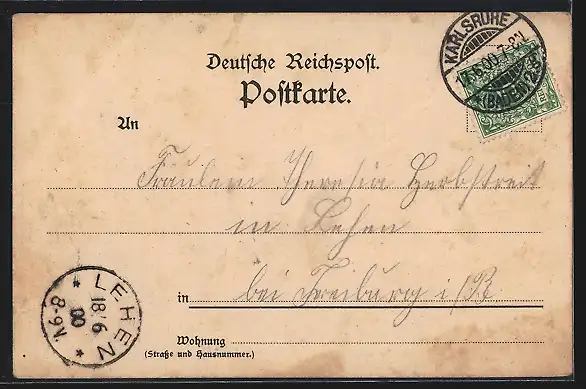 KARLSRUHE
(BADEN) 2
Deutsche Reichspost.
Postkarte.
An
Fräulein Theresia Herbstreit
in Lehen
in bei Freiburg i/B
Wohnung
(Straße und Hausnummer.)
LEHEN
18/6
00
8-9V.